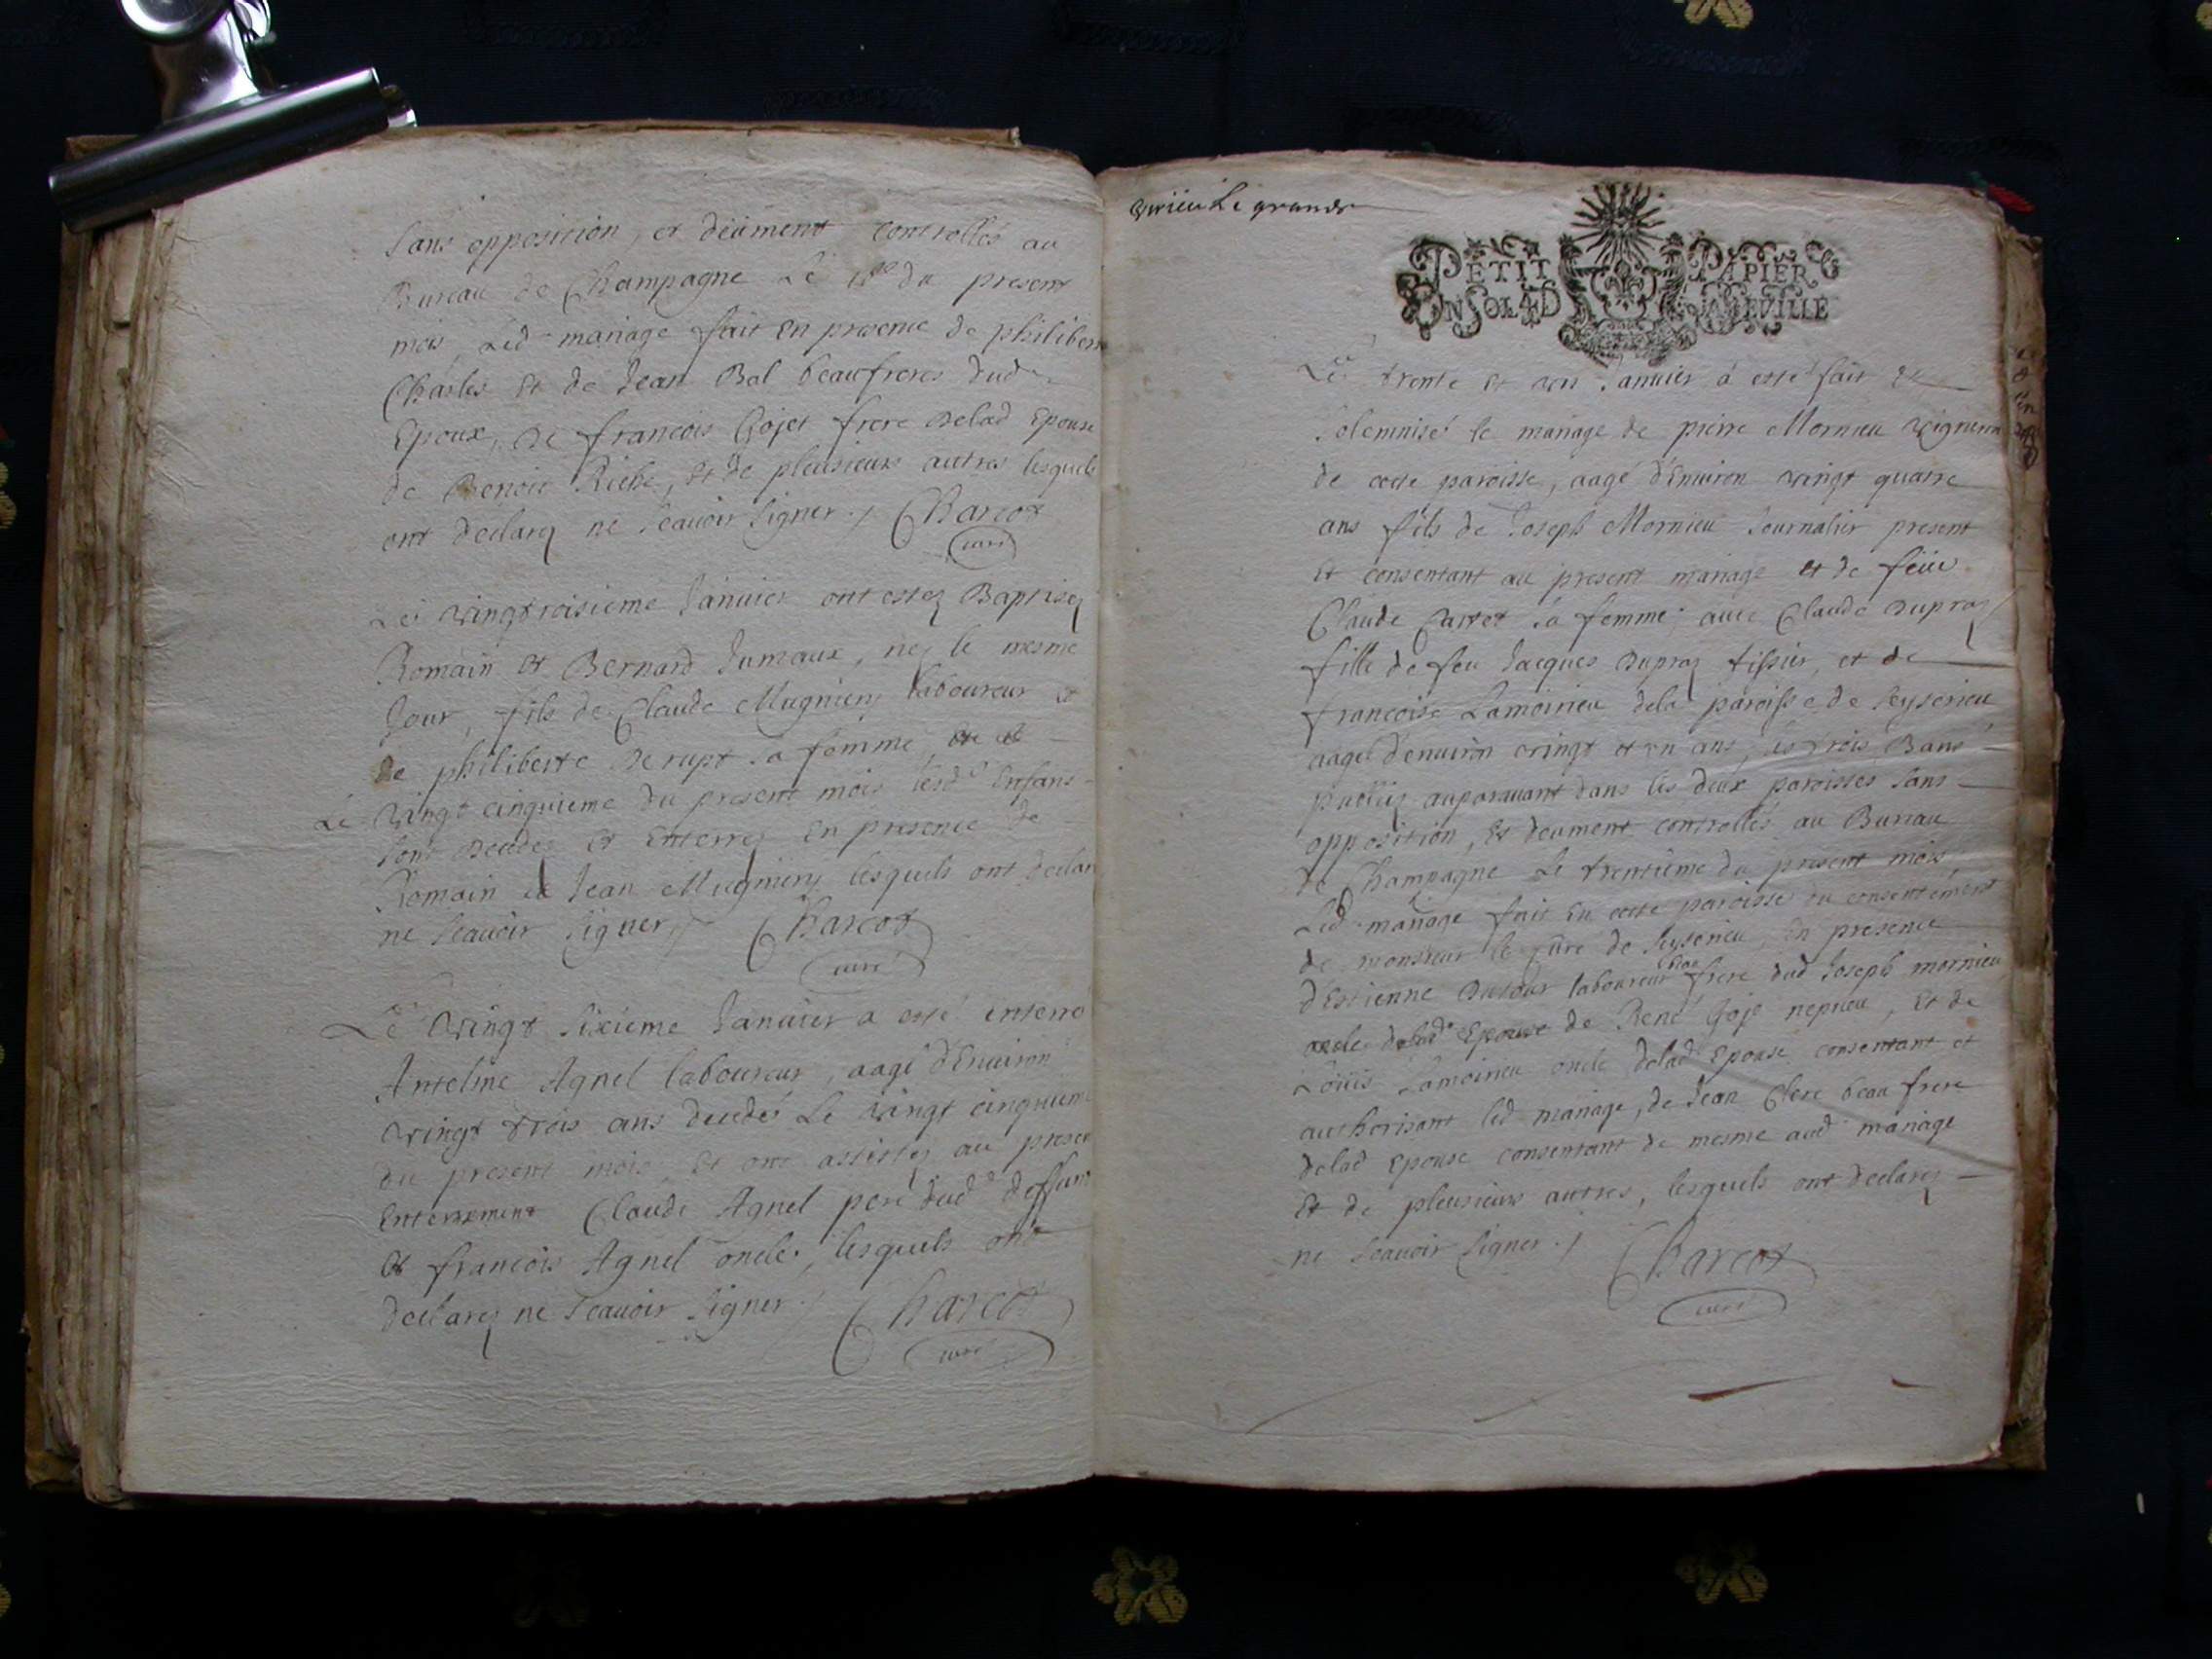 sans opposition, et deüment controllés au
Bureau de Champagne Le 18e du present
mois, Led mariage fait En presence de philibert
Charles et de Jean Bal beaufreres dud
Epoux, de francois Gojet frere delad Epouse
de Benoit Riche, et de pleusieurs autres lesquels
ont declarez ne scauoir signer ./ Charcot
curé
Le vingtroisieme Januier ont estez Baptisez
Romain et Bernard Jumaux, nez le mesme
Jour, fils de Claude Mugniery laboureur et
de philiberte Derupt sa femme, et
Le vingt cinquieme du present mois lesd Enfans
sont decedez et Enterrez En presence de
Romain et Jean Mugniery lesquels ont declare
ne scauoir signer ./ Charcot
curé
Le vingt sixieme Januier a esté enterré
Antelme Agnel laboureur, aagé d'Enuiron
vingt trois ans decedés Le vingt cinquieme
du present mois et ont assistez au present
Enterrement Claude Agnel pere dud deffunt
et francois Agnel oncle, lesquels ont
declarez ne scauoir signer ./ Charcot
curé
virieu Le grand
PETIT PAPIER
UN SOL 4 D LA FEUILLE
Le trente et un Januier a esté fait et
solemnisé le mariage de pierre Mornieu vigneron
de cette paroisse, aagé d'Enuiron vingt quatre
ans fils de Joseph Mornieu Journalier present
et consentant au present mariage et de feüe
Claude Carret sa femme; auec Claude Dupraz
fille de feu Jacques Dupraz tissier, et de
francoise Lamoirieu dela paroisse de Seyserieu
aagée d'enuiron vingt et un ans, les trois Bans
publiez auparauant dans les deux paroisses sans
opposition, Et deument controllés au Bureau
de Champagne Le trentieme du present mois
Led mariage fait En cette paroisse du consentement
de monsieur le Cure de Seyserieu, En presence
d'Estienne Dutour laboureur beau frere dud Joseph mornieu
de René Goje nepueu, Et de
Loüis Lamoirieu oncle delad Epouse consentant et
authorisant led mariage, de Jean Clerc beau frere
delad Epouse consentant de mesme aud mariage
Et de pleusieurs autres, lesquels ont declarez
ne scauoir signer ./ Charcot
curé